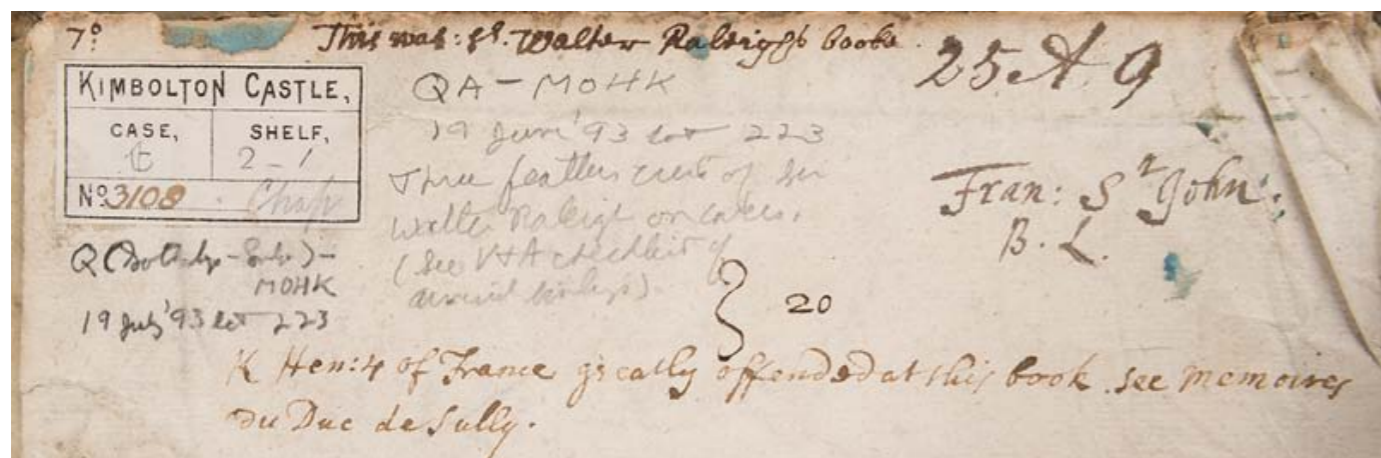 7º
This was: Sr. Walter Raleighs booke.
25 A 9
KIMBOLTON CASTLE,
CASE, SHELF,
t 2-1
Nº 3108
QA - MOHK
19 '93 lot 223
Three feathers crest of Sir
Walter Raleigh on covers.
(See V+A checklist of
armorial bindings).
Fran: St John:
B. L.
MOHK
19 July '93 lot 223
} 20
K Hen: 4 of France greatly offended at this book. see Memoires
du Duc de Sully.